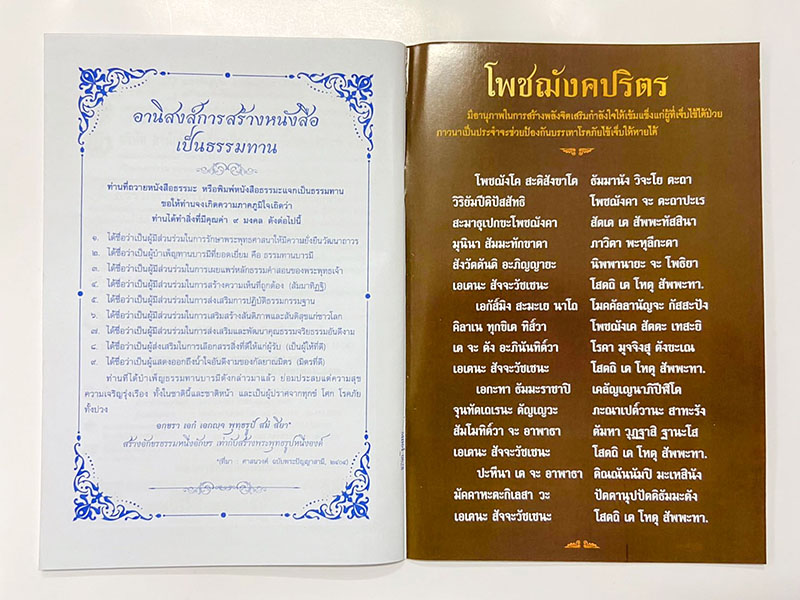 อานิสงส์การสร้างหนังสือ
เป็นธรรมทาน
ท่านที่ถวายหนังสือธรรมะ หรือพิมพ์หนังสือธรรมะแจกเป็นธรรมทาน
ขอให้ท่านจงเกิดความภาคภูมิใจเถิดว่า
ท่านได้ทำสิ่งที่มีคุณค่า ๙ มงคล ดังต่อไปนี้
๑. ได้ชื่อว่าเป็นผู้มีส่วนร่วมในการรักษาพระพุทธศาสนาให้มีความยั่งยืนวัฒนาถาวร
๒. ได้ชื่อว่าเป็นผู้บำเพ็ญทานบารมีที่ยอดเยี่ยม คือ ธรรมทานบารมี
๓. ได้ชื่อว่าเป็นผู้มีส่วนร่วมในการเผยแพร่หลักธรรมคำสอนของพระพุทธเจ้า
๔. ได้ชื่อว่าเป็นผู้มีส่วนร่วมในการสร้างความเห็นที่ถูกต้อง (สัมมาทิฏฐิ)
๕. ได้ชื่อว่าเป็นผู้มีส่วนร่วมในการส่งเสริมการปฏิบัติธรรมกรรมฐาน
๖. ได้ชื่อว่าเป็นผู้มีส่วนร่วมในการเสริมสร้างสันติภาพและสันติสุขแก่ชาวโลก
๗. ได้ชื่อว่าเป็นผู้มีส่วนร่วมในการส่งเสริมและพัฒนาคุณธรรมจริยธรรมอันดีงาม
๘. ได้ชื่อว่าเป็นผู้ส่งเสริมในการเลือกสรรสิ่งที่ดีให้แก่ผู้รับ (เป็นผู้ให้ที่ดี)
๙. ได้ชื่อว่าเป็นผู้แสดงออกถึงน้ำใจอันดีงามของกัลยาณมิตร (มิตรที่ดี)
ท่านที่ได้บำเพ็ญธรรมทานบารมีดังกล่าวมาแล้ว ย่อมประสบแต่ความสุข
ความเจริญรุ่งเรือง ทั้งในชาตินี้และชาติหน้า และเป็นผู้ปราศจากทุกข์ โศก โรคภัย
ทั้งปวง
อกขรา เอกํ เอกญฺจ พุทฺธรูปํ สมํ สิยา*
สร้างอักขรธรรมหนึ่งอักษร เท่ากับสร้างพระพุทธรูปหนึ่งองค์
*(ที่มา : ศาสนวงศ์ ฉบับพระปัญญาสามี, ๒๔๐๔)
โพชฌังคปริตร
มีอานุภาพในการสร้างพลังจิตเสริมกำลังใจให้เข้มแข็งแก่ผู้ที่เจ็บไข้ได้ป่วย
ภาวนาเป็นประจำจะช่วยป้องกันบรรเทาโรคภัยไข้เจ็บได้หายได้
โพชฌังโค สะติสังขาโต ธัมมานัง วิจะโย ตะถา
วิริยัมปีติปัสสัทธิ โพชฌังคา จะ ตะถาปะเร
สะมาธุเปกขะโพชฌังคา สัตเต เต สัพพะทัสสินา
มุนินา สัมมะทักขาตา ภาวิตา พะหุลีกะตา
สังวัตตันติ อะภิญญายะ นิพพานายะ จะ โพธิยา
เอเตนะ สัจจะวัชเชนะ โสตถิ เต โหตุ สัพพะทา.
เอกัส๎มิง สะมะเย นาโถ โมคคัลลานัญจะ กัสสะปัง
คิลาเน ทุกขิเต ทิส๎วา โพชฌังเค สัตตะ เทสะยิ
เต จะ ตัง อะภินันทิต๎วา โรคา มุจจิงสุ ตังขะเณ
เอเตนะ สัจจะวัชเชนะ โสตถิ เต โหตุ สัพพะทา.
เอกะทา ธัมมะราชาปิ เคลัญเญนาภิปีฬิโต
จุนทัตเถเรนะ ตัญเญวะ ภะณาเปต๎วานะ สาทะรัง
สัมโมทิต๎วา จะ อาพาธา ตัมหา วุฏฐาสิ ฐานะโส
เอเตนะ สัจจะวัชเชนะ โสตถิ เต โหตุ สัพพะทา.
ปะหีนา เต จะ อาพาธา ติณณันนัมปิ มะเหสินัง
มัคคาหะตะกิเลสา วะ ปัตตานุปปัตติธัมมะตัง
เอเตนะ สัจจะวัชเชนะ โสตถิ เต โหตุ สัพพะทา.